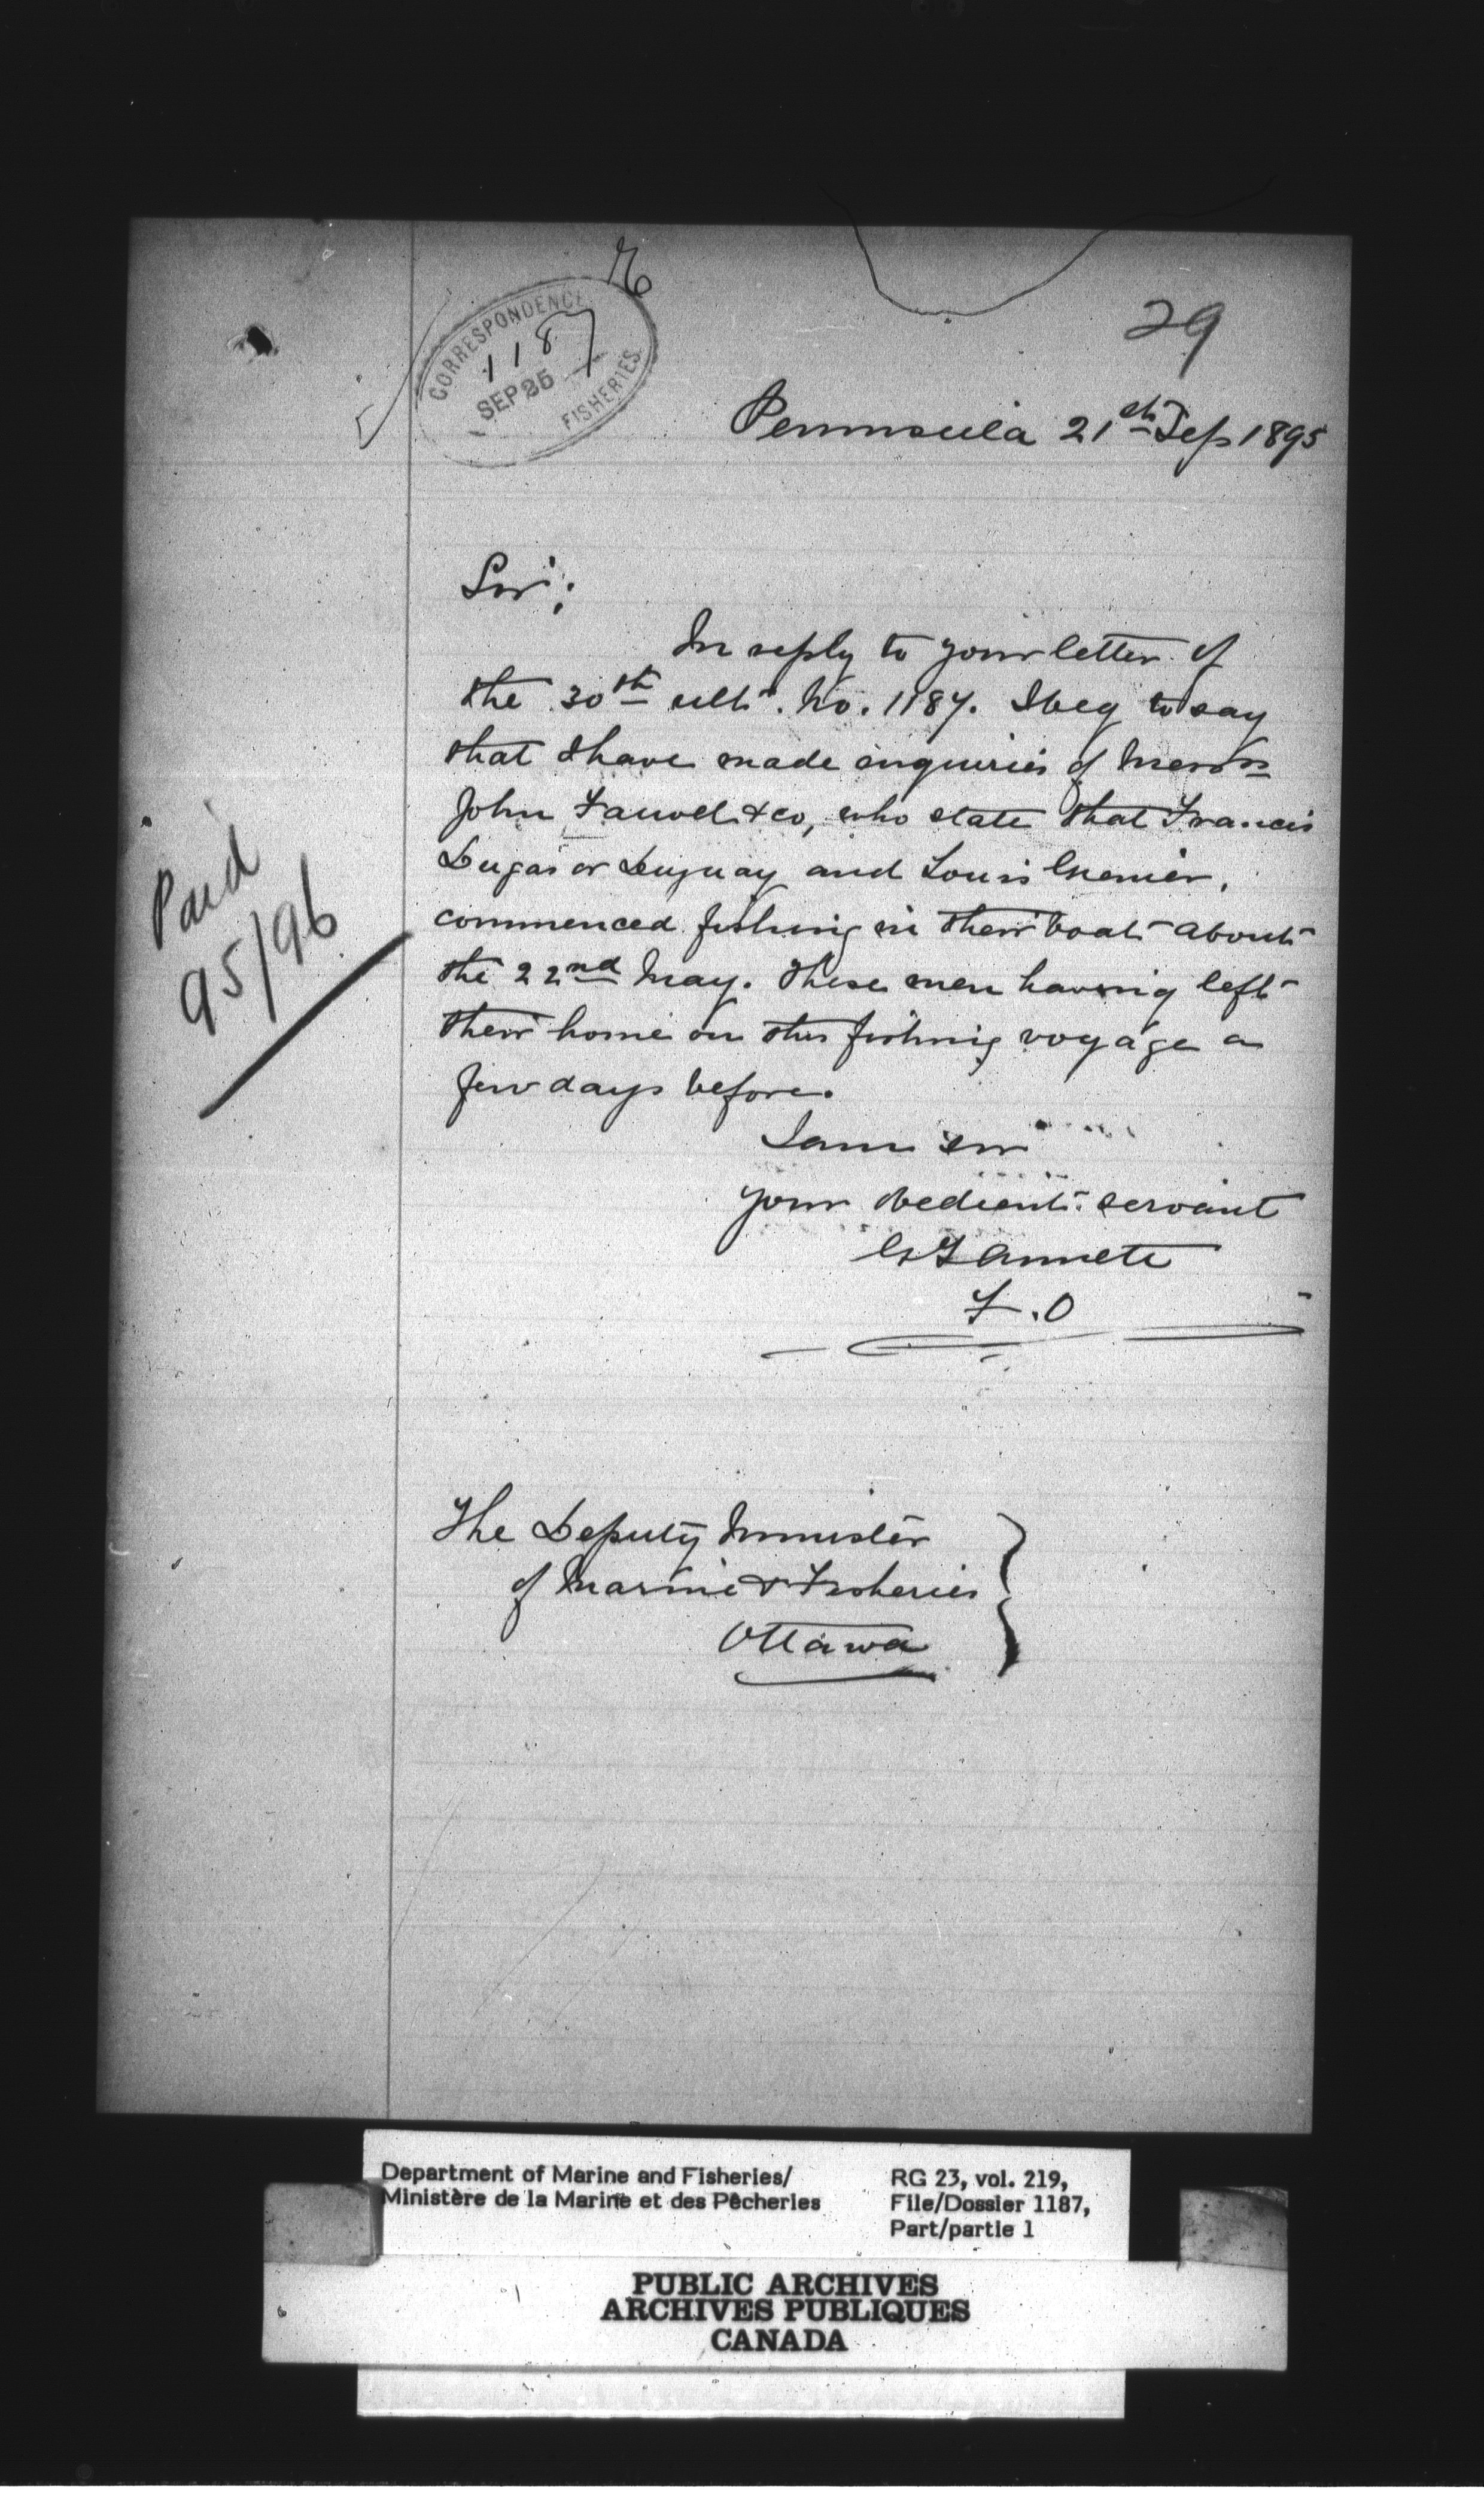 29
CORRESPONDENCE
1187
SEP 25
FISHERIES
Peninsula 21st Sep 1895
Sir;
In reply to your letter of
the 30th ult. No. 1187. I beg to say
that I have made enquiries of Messrs
John Fauvel & co, who state that Francis
Dugas or Duguay and Louis Grenier,
commenced fishing in their boat about
the 22nd May. These men having left
their home on this fishing voyage a
few days before.
I am sir
your obedient servant
Annett
F.O
Paid
95/96
The Deputy Minister
of Marine & Fisheries
Ottawa
Department of Marine and Fisheries/
Ministère de la Marine et des Pêcheries
RG 23, vol. 219,
File/Dossier 1187,
Part/partie 1
PUBLIC ARCHIVES
ARCHIVES PUBLIQUES
CANADA